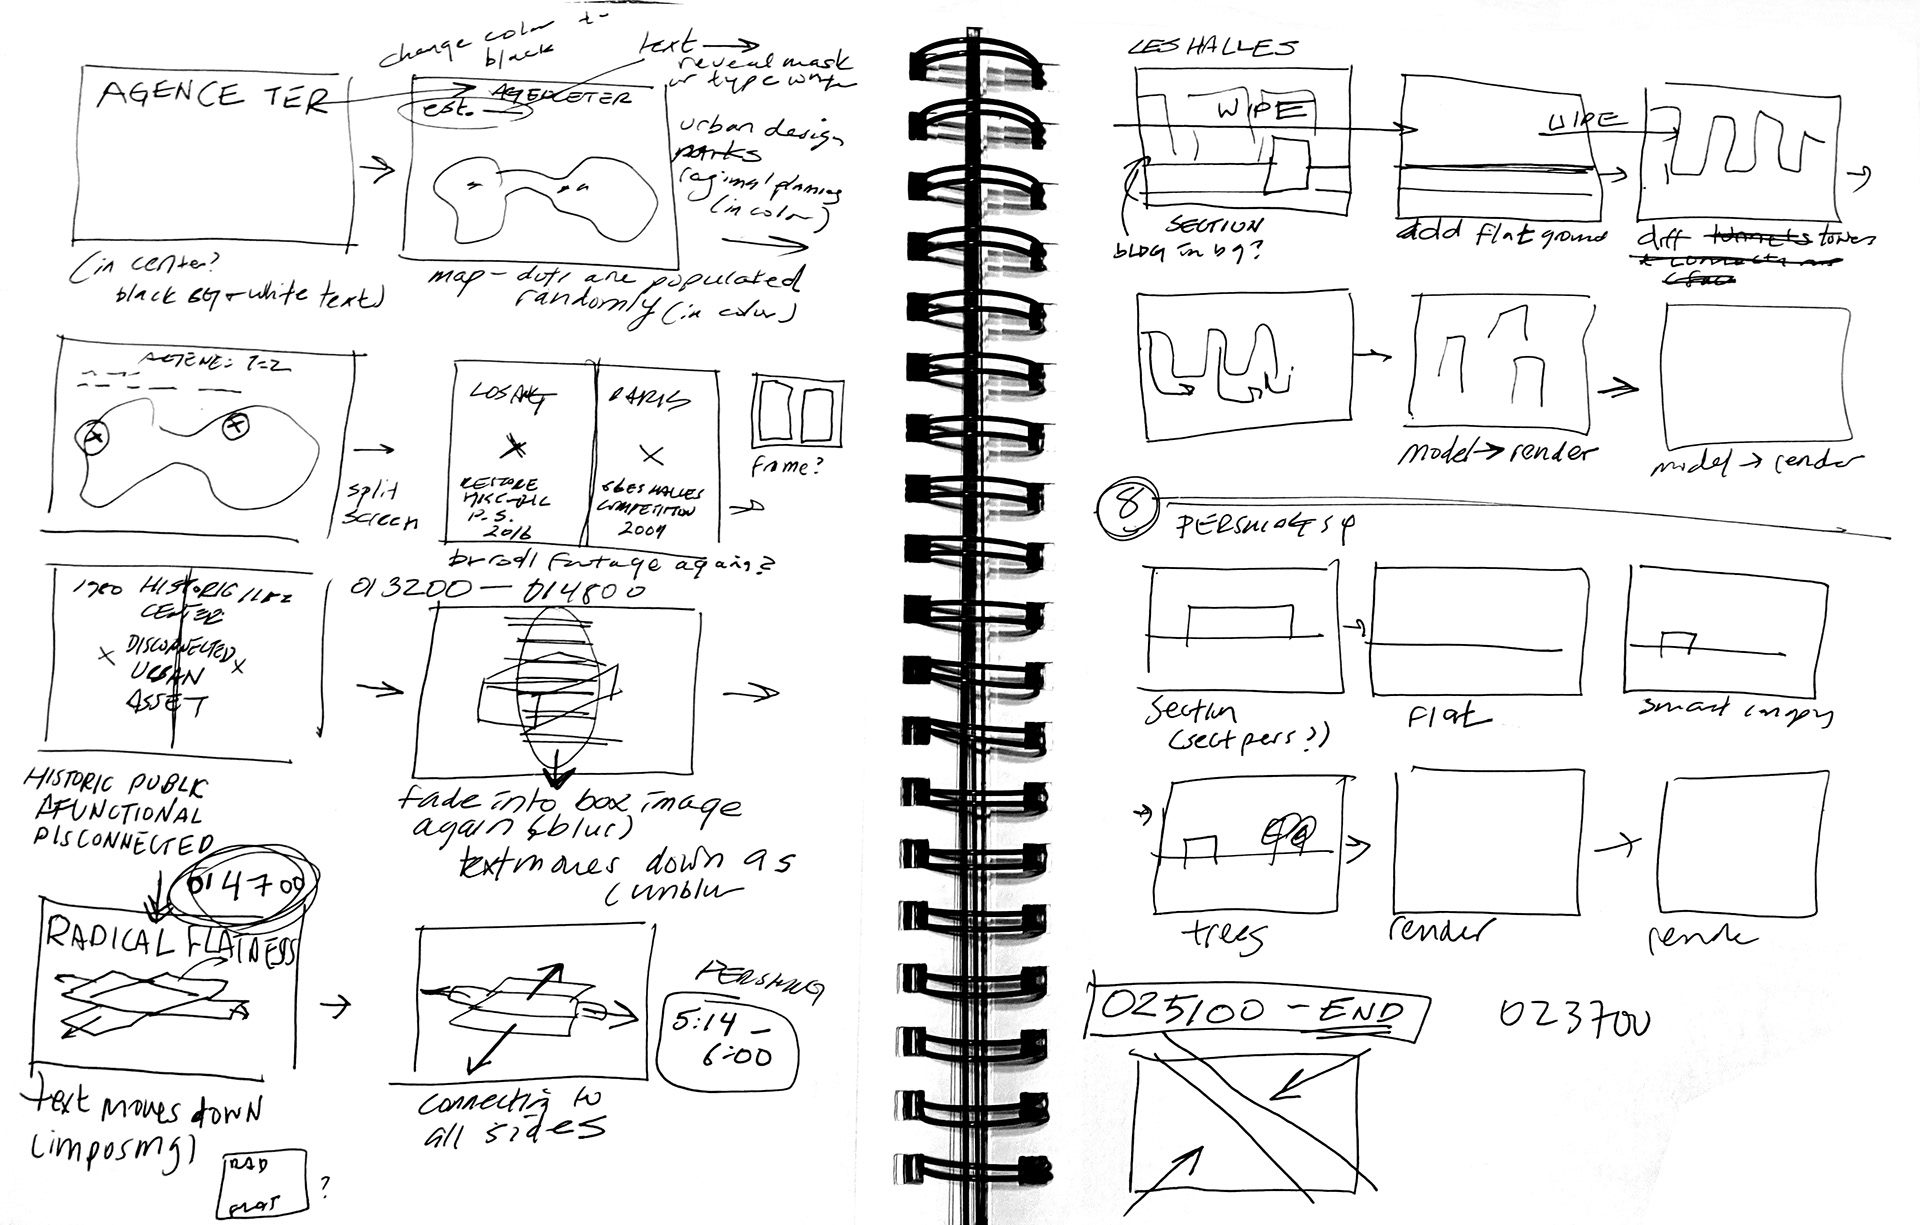 change color t-
black
text
reveal mask
or type
AGENCE TER
AGENCETER
est.
urban design
parks
regional planning
(in color)
(in center?
black BG + white text)
map - dots are populated
randomly (in color)
split
screen
LOS ANG
RESTORE
P.S.
2016
PARIS
LES HALLES
COMPETITION
2009
frame?
footage again?
013200 - 014800
1980 HISTORIC
CENTER
DISCONNECTED
URBAN
ASSET
HISTORIC PUBLIC
AFUNCTIONAL
DISCONNECTED
fade into box image
again (blur)
text moves down as
unblur
014700
RADICAL FLATNESS
text moves down
(imposing)
RAD
FLAT
?
connecting to
all sides
PERSHING
5:14 -
6:00
LES HALLES
WIPE
WIPE
SECTION
BLDG in bg?
add flat ground
diff tunnels
model → render
model → render
8
PERSHING SQ
section
(sect pers?)
flat
smart canopy
trees
render
rende
025100 - END
023700